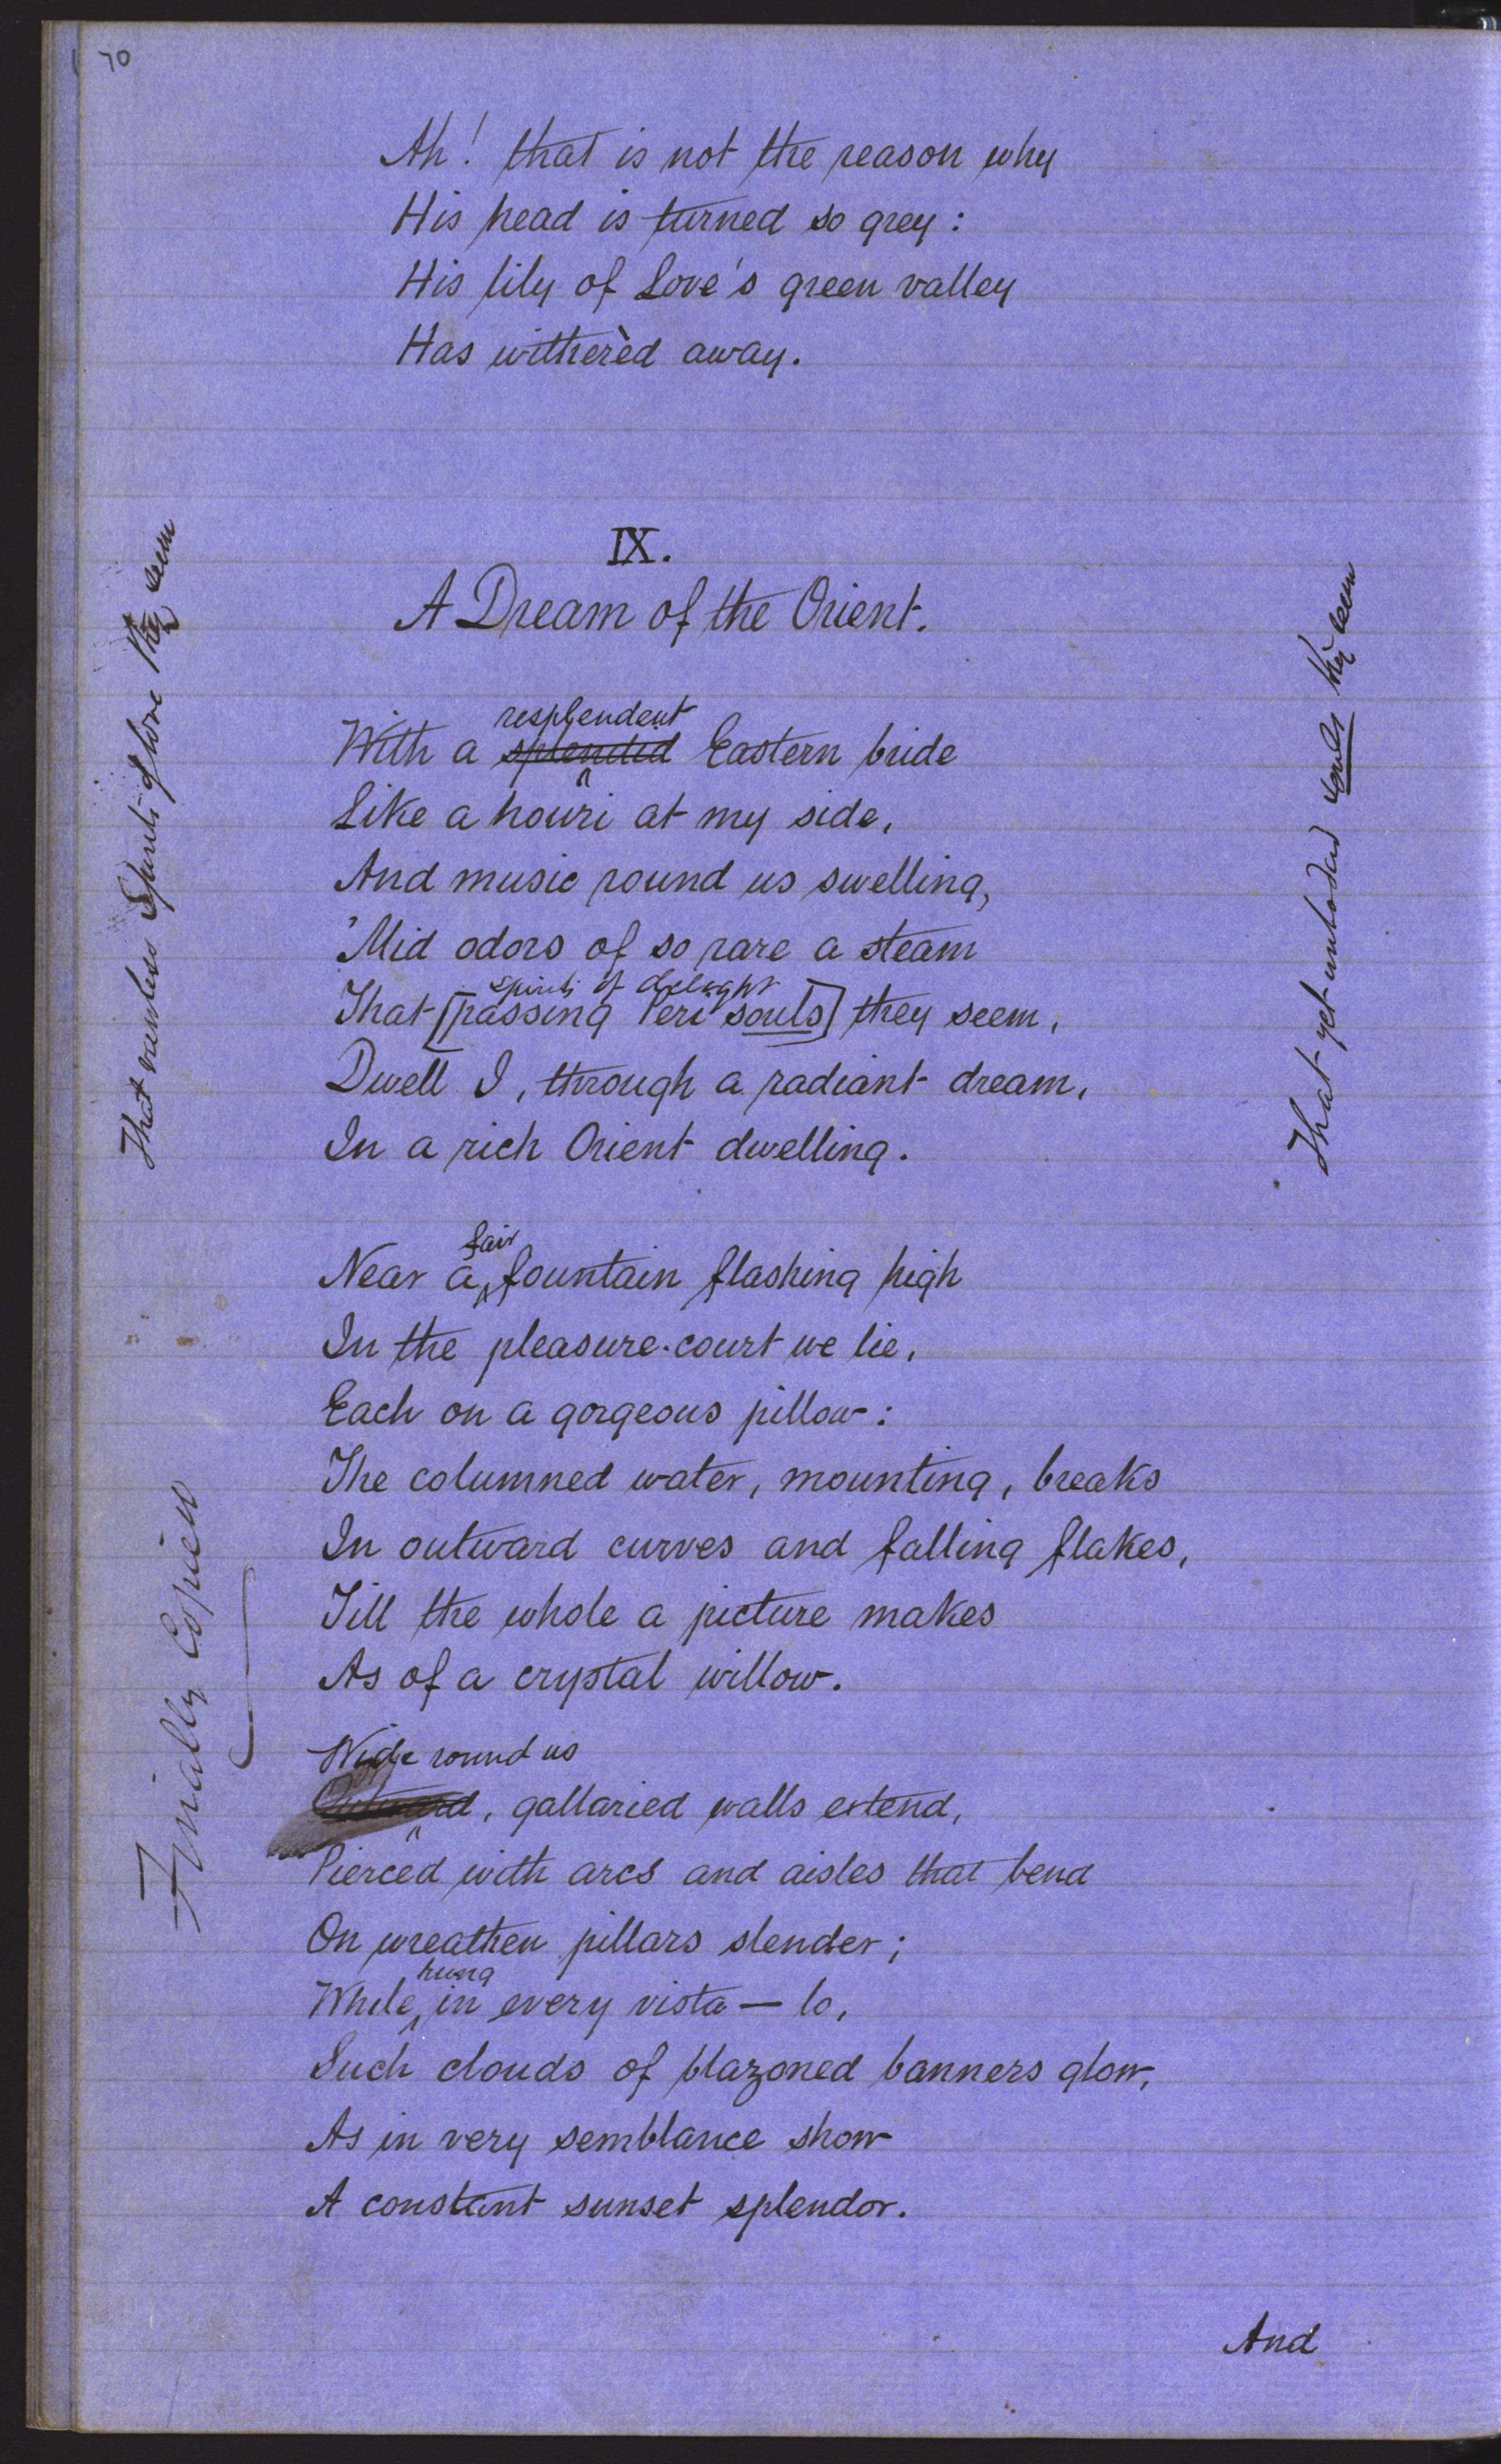 70
Ah! that is not the reason why
His head is turned so grey:
His lily of Love's green valley
Has witherèd away.
IX.
A Dream of the Orient.
resplendent
With a splendid Eastern bride
Like a houri at my side,
And music round us swelling,
'Mid odors of so rare a steam
spirits of delight
That [passing Peri souls] they seem,
Dwell I, through a radiant dream,
In a rich Orient dwelling.
fair
Near a fountain flashing high
In the pleasure-court we lie,
Each on a gorgeous pillow:
The columned water, mounting, breaks
In outward curves and falling flakes,
Till the whole a picture makes
As of a crystal willow.
Wide round us
Outward, gallaried walls extend,
Pierced with arcs and aisles that bend
On wreathen pillars slender;
hung
While in every vista — lo,
Such clouds of blazoned banners glow,
As in very semblance show
A constant sunset splendor.
And
That viewless Spirits of love they seem
Finally Copied
That yet unbodied souls they seem